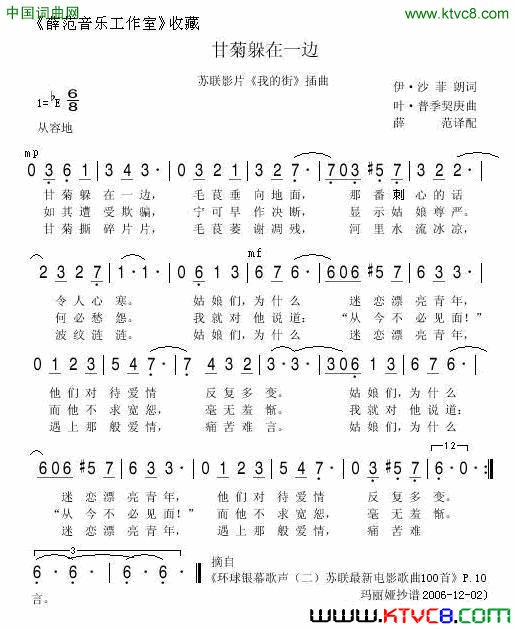 中国词曲网
www.ktvc8.com
《薛范音乐工作室》收藏
甘菊躲在一边
苏联影片《我的街》插曲
1=♭E 6/8
伊·沙菲朗词
叶·普季契庚曲
薛 范译配
从容地
mp
0 3 6 1 | 3 4 3 · | 0 1 3 1 | 3 2 2 · | 7 0 3 ♯5 7 | 3 2 2 ·
甘菊躲在一边, 毛莨垂向地面, 那番刺心的话
如其遭受欺骗, 宁可早作决断, 显示姑娘尊严。
甘菊撕碎片片, 毛莨萎谢凋残, 河里水流冰凉,
mf
2 3 2 7 | 1 · 1 · | 0 6 1 3 | 6 7 6 · | 6 0 6 ♯5 6 | 4 3 3 ·
令人心寒。 姑娘们,为什么 迷恋漂亮青年,
何必愁怨。 我就对他说道: “从今不必见面!”
波纹涟涟。 姑娘们,为什么 迷恋漂亮青年,
0 1 2 3 | 5 4 7 · | 7 4 3 2 | 1 3 · | 0 6 1 3 | 6 7 6 ·
他们对待爱情 反复多变。 姑娘们,为什么
而他不求宽恕, 毫无羞惭。 我就对他说道:
遇上那般爱情, 痛苦难言。 姑娘们,为什么
6 0 6 ♯5 7 | 6 3 3 · | 0 1 2 3 | 5 4 7 · | 0 3 ♯5 7 | 6 · 0 · :‖
12
迷恋漂亮青年, 他们对待爱情 反复多变。
“从今不必见面!” 而他不求宽恕, 毫无羞惭。
迷恋漂亮青年, 遇上那般爱情, 痛苦难
3
6 · 6 · | 6 · 6 · | 6 · 6 · ‖
言。
摘自
《环球银幕歌声(二)苏联最新电影歌曲100首》P.10
玛丽娅抄谱 2006-12-02)
www.KTVC8.com